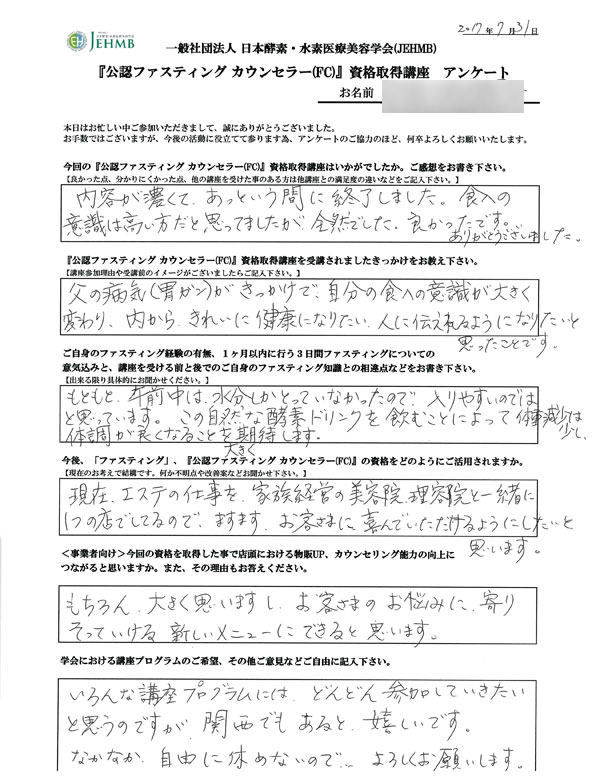 JEHMB
2017年7月31日
一般社団法人 日本酵素・水素医療美容学会(JEHMB)
『公認ファスティング カウンセラー(FC)』資格取得講座 アンケート
お名前
本日はお忙しい中ご参加いただきまして、誠にありがとうございました。
お手数ではございますが、今後の活動に役立てて参ります為、アンケートのご協力のほど、何卒よろしくお願いいたします。
今回の『公認ファスティング カウンセラー(FC)』資格取得講座はいかがでしたか。ご感想をお書き下さい。
【良かった点、分かりにくかった点、他の講座を受けた事のある方は他講座との満足度の違いなどをご記入下さい。】
内容が濃くて、あっという間に終了しました。食への
意識は高い方だと思ってましたが全然でした。良かったです。
ありがとうございました。
『公認ファスティング カウンセラー(FC)』資格取得講座を受講されましたきっかけをお教え下さい。
【講座参加理由や受講前のイメージがございましたらご記入下さい。】
父の病気(胃ガン)がきっかけで、自分の食への意識が大きく
変わり、内から、きれいに健康になりたい、人に伝えれるようになりたいと
思ったことです。
ご自身のファスティング経験の有無、1ヶ月以内に行う3日間ファスティングについての
意気込みと、講座を受ける前と後でのご自身のファスティング知識との相違点などをお書き下さい。
【出来る限り具体的にお聞かせください。】
もともと、午前中は、水分しかとっていなかったので、入りやすいのでは
と思っています。この自然な酵素ドリンクを飲むことによって体重減少は少し、
体調が良くなることを大きく期待します。
今後、「ファスティング」、『公認ファスティング カウンセラー(FC)』の資格をどのようにご活用されますか。
【現在のお考えで結構です。何か不明点や改善案などお聞かせ下さい。】
現在、エステの仕事を、家族経営の美容院、理容院と一緒に
1つの店でしてるので、ますます、お客さまに喜んでいただけるようにしたいと
思います。
＜事業者向け＞今回の資格を取得した事で店頭における物販UP、カウンセリング能力の向上に
つながると思いますか。また、その理由もお答えください。
もちろん、大きく思いますし、お客さまのお悩みに、寄り
そっていける新しいメニューにできると思います。
学会における講座プログラムのご希望、その他ご意見などご自由に記入下さい。
いろんな講座プログラムには、どんどん参加していきたい
と思うのですが、関西でもあると、嬉しいです。
なかなか、自由に休めないので… よろしくお願いします。